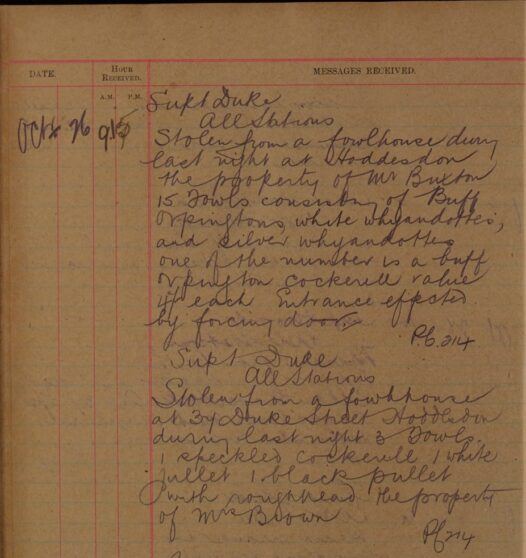 DATE.
HOUR RECEIVED.
MESSAGES RECEIVED.
A.M. P.M.
Octr 26 915
Supt Duke
All Stations
Stolen from a fowlhouse during
last night at Hoddesdon
the property of Mr Buxton
15 Fowls consisting of Buff
orpingtons, white whyandottes,
and silver whyandottes
one of the number is a buff
orpington cockerell value
4/- each Entrance effected
by forcing door.
P.C. 214
Supt Duke
All Stations
Stolen from a fowlhouse
at 34 Duke Street Hoddesdon
during last night 3 Fowls.
1 speckled cockerell 1 white
pullet 1 black pullet
with roughhead the property
of Mrs Brown
PC 214